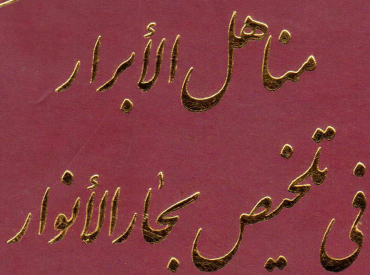 مناهل الأبرار
في تلخيص بحار الأنوار